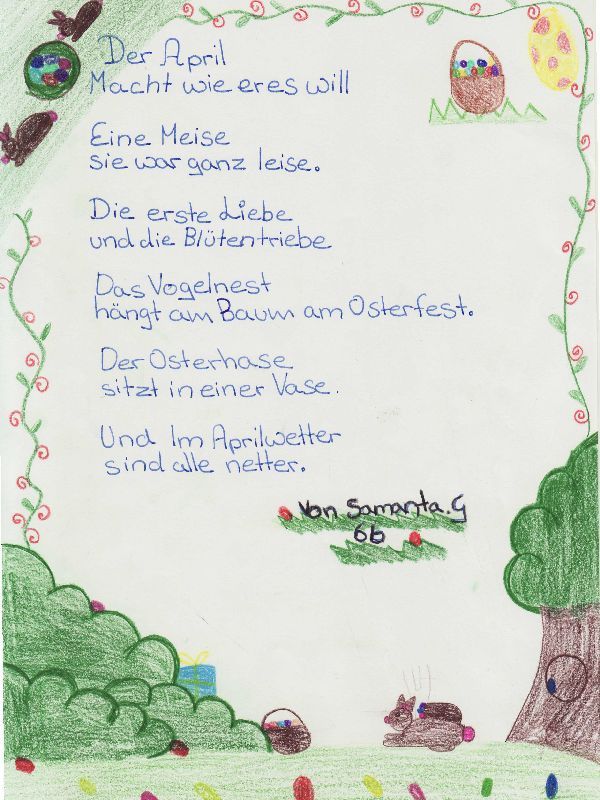 Der April
Macht wie er es will
Eine Meise
sie war ganz leise.
Die erste Liebe
und die Blütentriebe
Das Vogelnest
hängt am Baum am Osterfest.
Der Osterhase
sitzt in einer Vase.
Und Im Aprilwetter
sind alle netter.
Von Samanta.G
6b